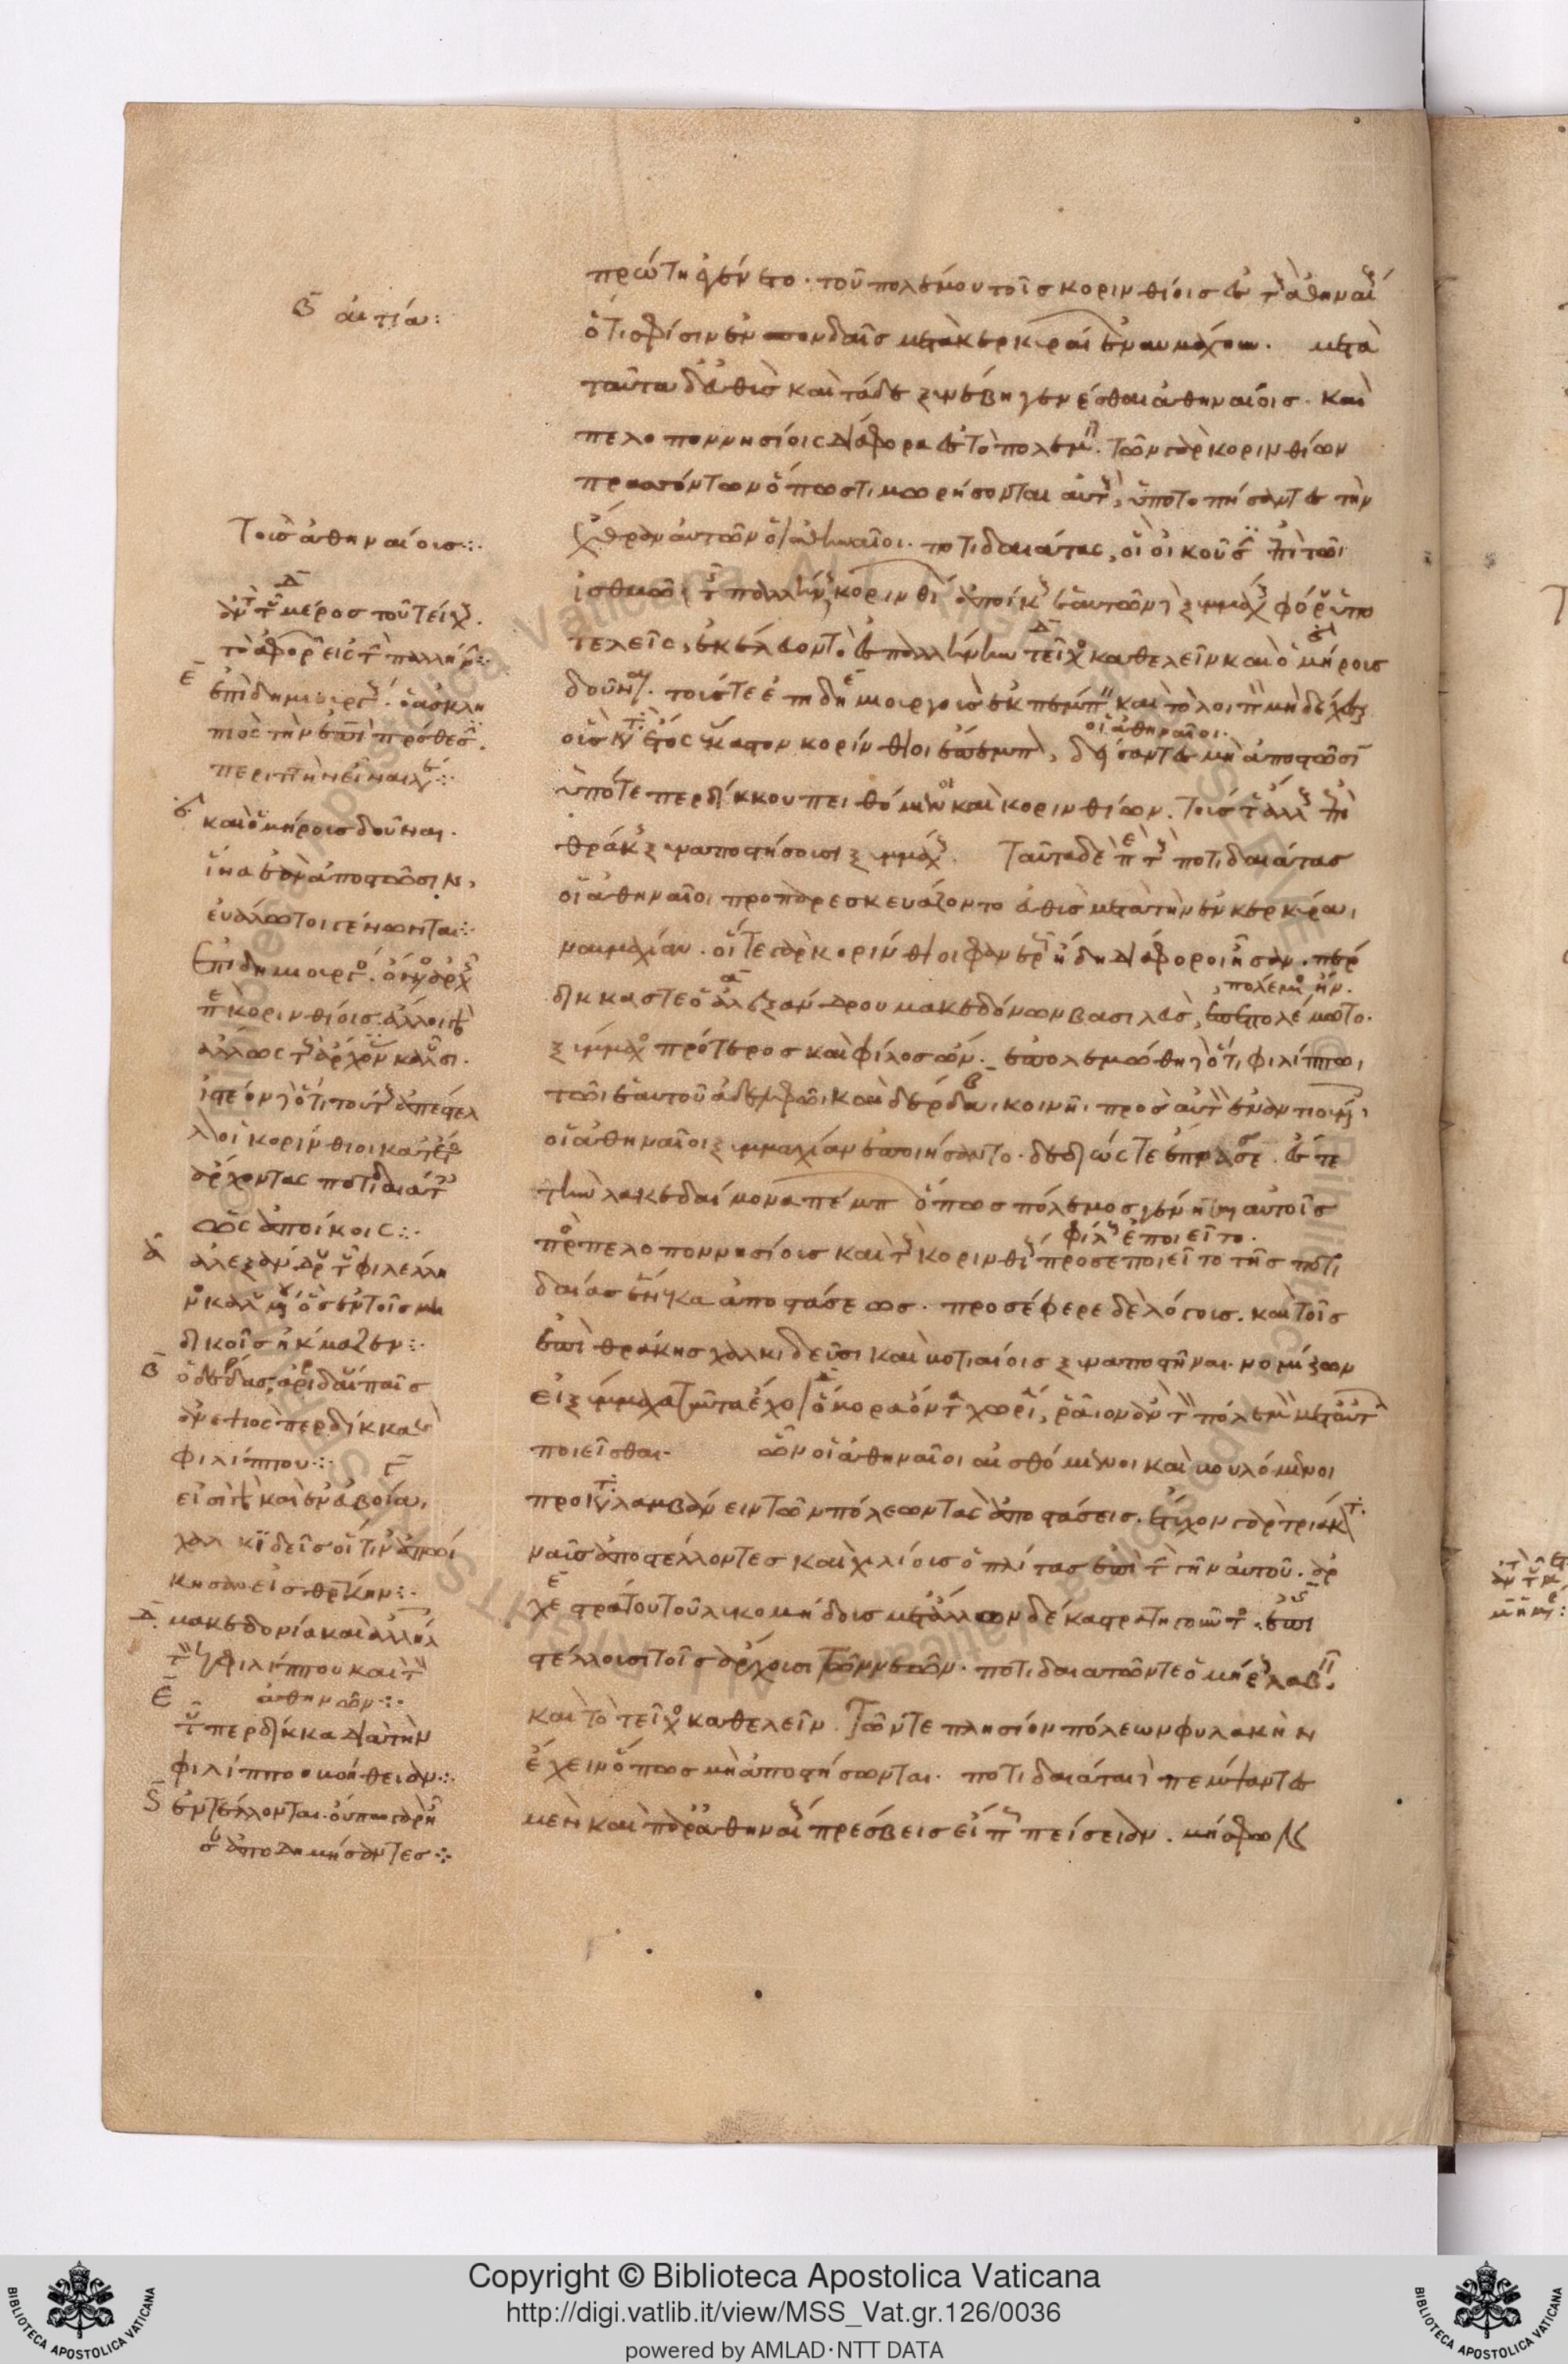 πρώτη ἐγένετο. τοῦ πολέμου τοῖς κορινθίοις ἐς τοὺς ἀθηναίους
ὅτι σφίσιν ἐν σπονδαῖς μετὰ κερκυραίων ἐναυμάχουν. μετὰ
ταῦτα δ' εὐθὺς καὶ τάδε ξυνέβη γενέσθαι ἀθηναίοις. καὶ
πελοποννησίοις διάφορα ἐς τὸ πολεμεῖν. τῶν γὰρ κορινθίων
πρασσόντων ὅπως τιμωρήσονται αὐτοὺς, ὑποτοπήσαντες τὴν
ἔχθραν αὐτῶν οἱ ἀθηναῖοι. ποτιδαιάτας, οἳ οἰκοῦσιν ἐπὶ τῶι
ἰσθμῶι τῆς παλλήνης, κορινθίων ἀποίκους ἑαυτῶν δὲ ξυμμάχους φόρου ὑπο
τελεῖς, ἐκέλευον τὸ ἐς παλλήνην τεῖχος καθελεῖν καὶ ὁμήρους
δοῦναι. τούς τε ἐπιδημιουργοὺς ἐκπέμπειν καὶ τὸ λοιπὸν μὴ δέχεσθαι
οὓς κατὰ ἔτος ἕκαστον κορίνθιοι ἔπεμπον, δείσαντες μὴ ἀποστῶσιν
οἱ ἀθηναῖοι.
ὑπό τε περδίκκου πειθόμενοι καὶ κορινθίων. τούς τε ἄλλους τοὺς ἐπὶ
θράκης ξυναποστήσωσι ξυμμάχους. Ταῦτα δὲ περὶ τοὺς ποτιδαιάτας
οἱ ἀθηναῖοι προπαρεσκευάζοντο εὐθὺς μετὰ τὴν ἐν κερκύραι
ναυμαχίαν. οἵ τε γὰρ κορίνθιοι φανερῶς ἤδη διάφοροι ἦσαν. περ
δίκκας τε ὁ ἀλεξάνδρου μακεδόνων βασιλεὺς, ἐπεπολέμωτο.
πολέμιος ἦν.
ξύμμαχος πρότερος καὶ φίλος ὤν. ἐπολεμώθη δὲ ὅτι φιλίππωι
τῶι ἑαυτοῦ ἀδελφῶι καὶ δέρδαι κοινῆι πρὸς αὐτὸν ἐναντιουμένοις
οἱ ἀθηναῖοι ξυμμαχίαν ἐποιήσαντο. δεδιώς τε ἔπρασσεν. ἔς τε
τὴν λακεδαίμονα πέμπων ὅπως πόλεμος γένηται αὐτοῖς
πρὸς πελοποννησίους καὶ τοὺς κορινθίους προσεποιεῖτο τῆς ποτι
φίλους ἐποιεῖτο.
δαίας ἕνεκα ἀποστάσεως. προσέφερε δὲ λόγους. καὶ τοῖς
ἐπὶ θράκης χαλκιδεῦσι καὶ βοτιαίοις ξυναποστῆναι. νομίζων
εἰ ξύμμαχα ταῦτα ἔχοι ὅμορα ὄντα χωρία, ῥᾶιον ἂν τὸν πόλεμον μετ' αὐτῶν
ποιεῖσθαι. ὧν οἱ ἀθηναῖοι αἰσθόμενοι καὶ βουλόμενοι
προκαταλαμβάνειν τῶν πόλεων τὰς ἀποστάσεις. ἔτυχον γὰρ τριάκοντα
ναῦς ἀποστέλλοντες καὶ χιλίους ὁπλίτας ἐπὶ τὴν γῆν αὐτοῦ. ἀρ
χεστράτου τοῦ λυκομήδους μετ' ἄλλων δέκα στρατηγοῦντος. ἐπι
στέλλουσι τοῖς ἄρχουσι τῶν νεῶν. ποτιδαιατῶν τε ὁμήρους λαβεῖν.
καὶ τὸ τεῖχος καθελεῖν. τῶν τε πλησίον πόλεων φυλακὴν
ἔχειν ὅπως μὴ ἀποστήσωνται. ποτιδαιάται δὲ πέμψαντες
μὲν καὶ παρ' ἀθηναίους πρέσβεις εἴ πως πείσειαν. μὴ σφῶν
β αἰτία:
Τοῖς ἀθηναίοις:
Δ ἀντὶ τοῦ μέρος τοῦ τείχους.
τὸ ἀφορῶν εἰς τὴν παλλήνην:
Ε ἐπιδημιουργούς. ὁ ἀσκλη
πιὸς τὴν ἐπὶ πρόθεσιν.
περιττὴν εἶναι λέγει:
καὶ ὁμήρους δοῦναι.
ἵνα ἐὰν ἀποστῶσιν,
εὐάλωτοι γένωνται:
Ἐπιδημιουργός. ὄνομα ἀρχῆς
παρὰ κορινθίοις. ἄλλοι δὲ
ἄλλως τοὺς ἄρχοντας καλοῦσι.
ἰστέον δὲ ὅτι τούτους ἀπέστελ
λον οἱ κορίνθιοι κατ' ἔτος
ἄρχοντας ποτιδαιάταις
ὡς ἀποίκοις:
α ἀλεξάνδρου τοῦ φιλέλλη
νος καλουμένου ὃς ἐν τοῖς μη
δικοῖς ἤκμαζεν:
β ὁ δέρδας, ἀριδαίου παῖς
ἀνεψιὸς περδίκκα καὶ
φιλίππου: Γ
εἰσὶ δὲ καὶ ἐν εὐβοίαι
χαλκιδεῖς οἵτινες ἀπώι
κησαν εἰς θράκην:
Δ μακεδονία καὶ ἀλλήλ
τοῦ φιλίππου καὶ τῶν
ἀθηνῶν:
Ε τοῦ περδίκκα διὰ τὴν
φιλίππου βοήθειαν:
S ἐντέλλονται. οὔπω γὰρ ἦ
σαν ἀποδημήσαντες:
Copyright © Biblioteca Apostolica Vaticana
http://digi.vatlib.it/view/MSS_Vat.gr.126/0036
powered by AMLAD·NTT DATA